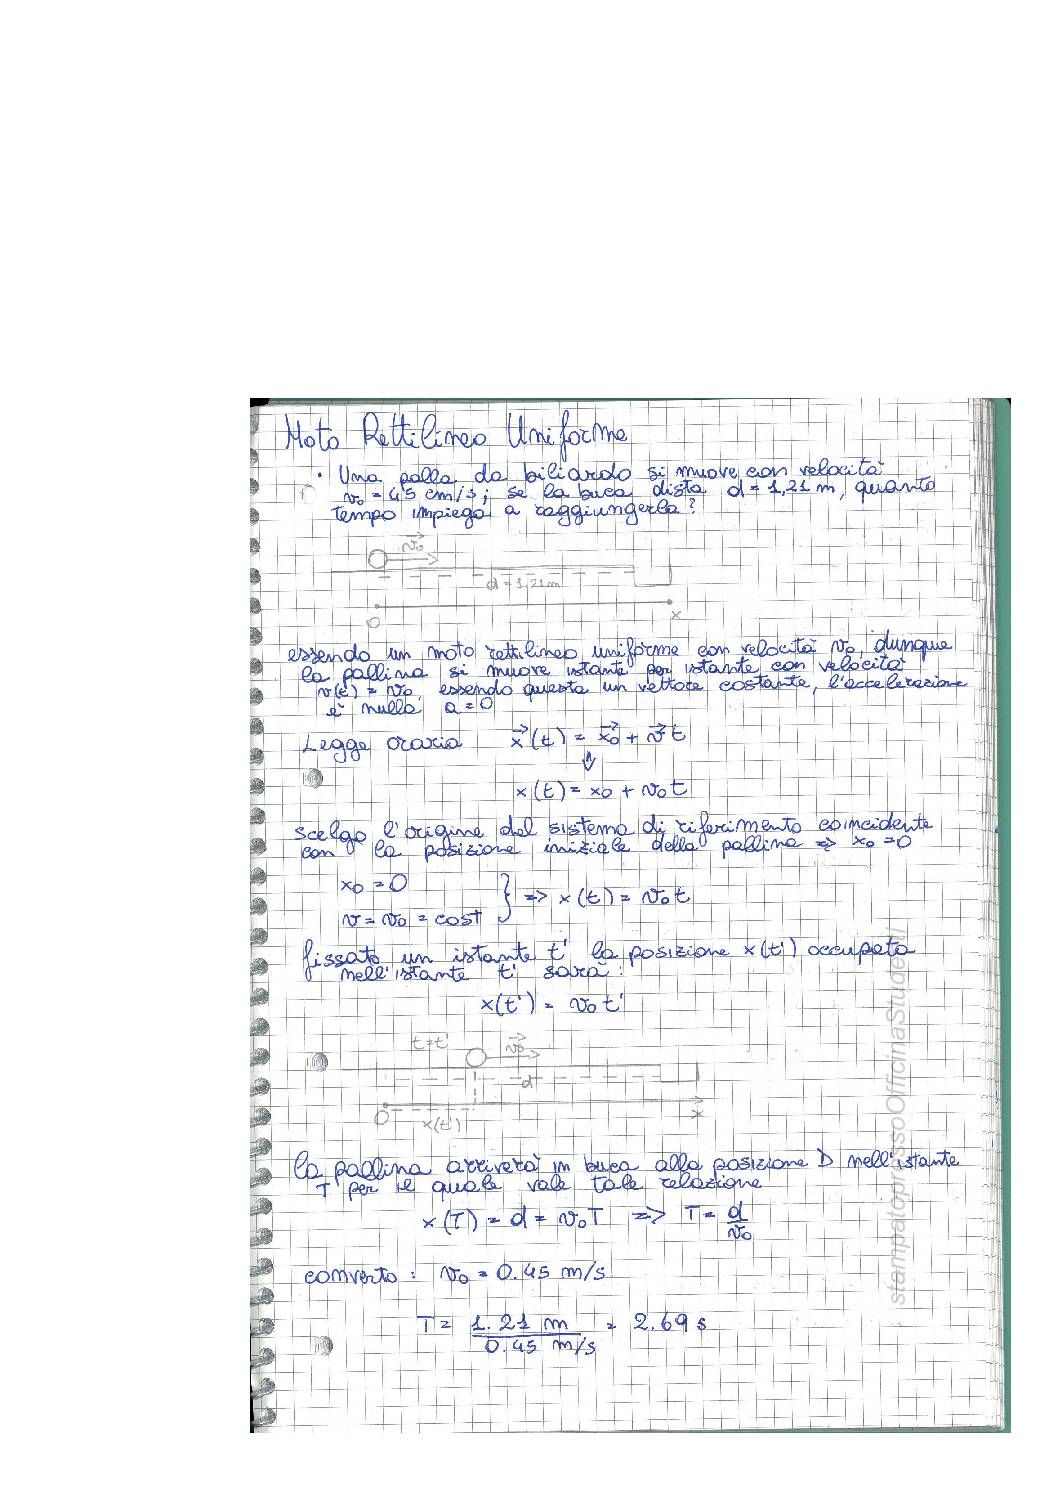 Moto Rettilineo Uniforme
• Una palla da biliardo si muove con velocità
v₀ = 45 cm/s; se la buca dista d = 1,21 m, quanto
tempo impiega a raggiungerla?
v₀
d = 1,21m
O x
essendo un moto rettilineo uniforme con velocità v₀, dunque
la pallina si muove istante per istante con velocità
v(t) = v₀, essendo questa un vettore costante, l'accelerazione
è nulla a = 0
Legge oraria x⃗(t) = x⃗₀ + v⃗t
⇕
x(t) = x₀ + v₀t
scelgo l'origine del sistema di riferimento coincidente
con la posizione iniziale della pallina => x₀ = 0
x₀ = 0
} => x(t) = v₀t
v = v₀ = cost
fissato un istante t' la posizione x(t') occupata
nell'istante t' sarà:
x(t') = v₀t'
t=t' v₀
d
O x(t') x
la pallina arriverà in buca alla posizione D nell'istante
T per il quale vale tale relazione
x(T) = d = v₀T => T = d/v₀
converto: v₀ = 0.45 m/s
T = 1.21 m / 0.45 m/s = 2.69 s
stampatopressoOfficinaStudenti